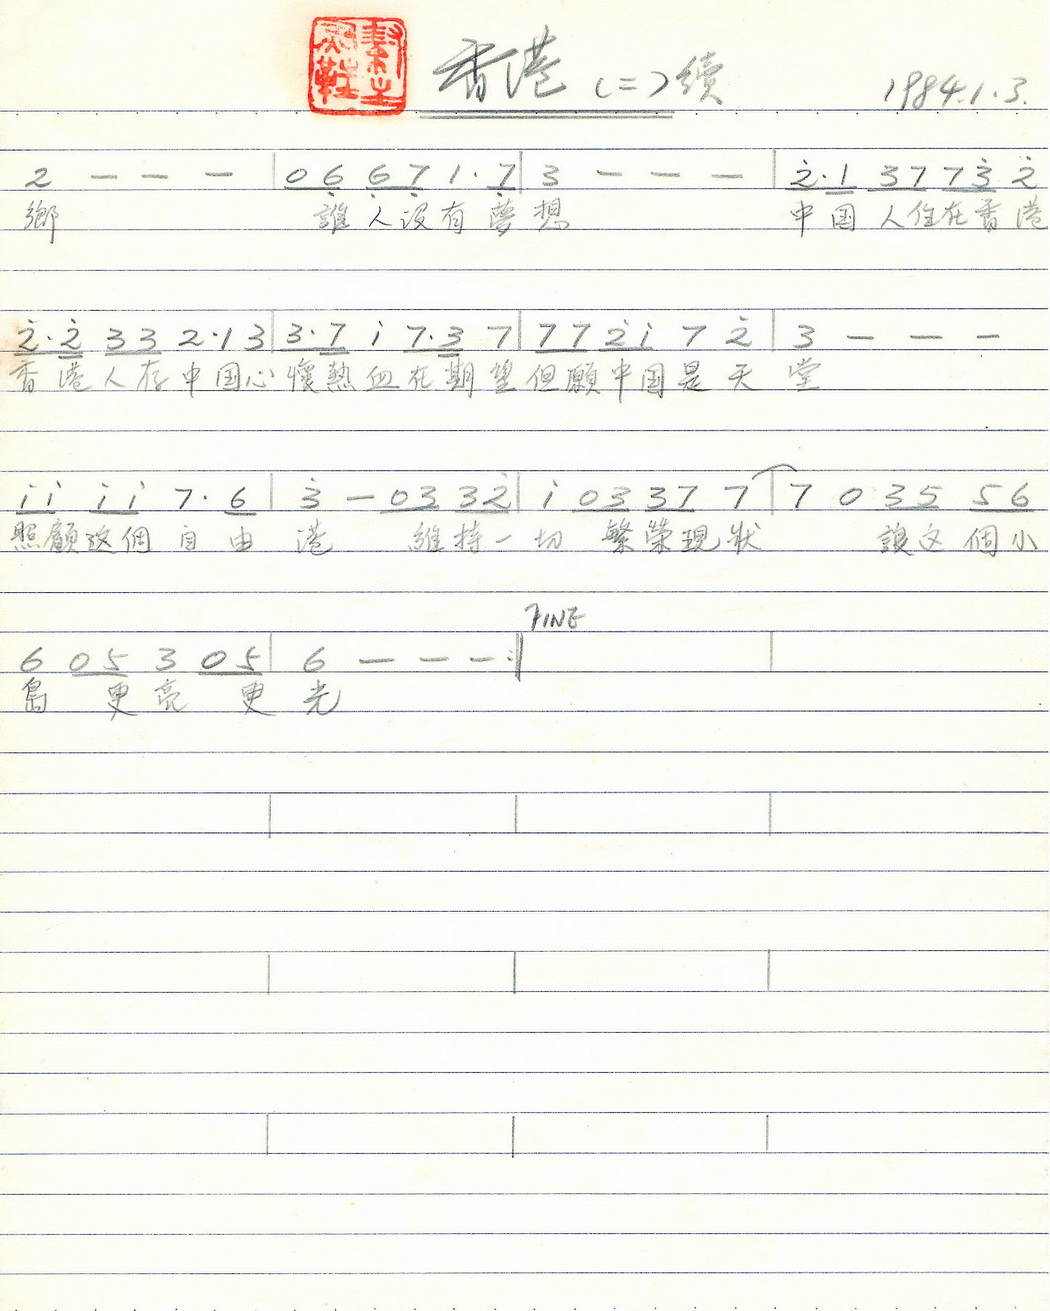 香港 (二) 續 1984.1.3.
2 — — — | 0 6 6 7 1 · 7 | 3 — — — | 2 · 1 3 7 7 3 2
鄉 誰人没有夢想 中国人住在香港
2 · 2 3 3 2 · 1 3 | 3 · 7 i 7 · 3 7 | 7 7 2 i 7 2 | 3 — — —
香港人存中国心懷熱血在期望但願中国是天堂
i i i i 7 · 6 | 3 — 0 3 3 2 | i 0 3 3 7 7 | 7 0 3 5 5 6
照顧这個自由港 維持一切繁榮現狀 讓这個小
FINE
6 0 5 3 0 5 | 6 — — — :|
島 更亮 更光